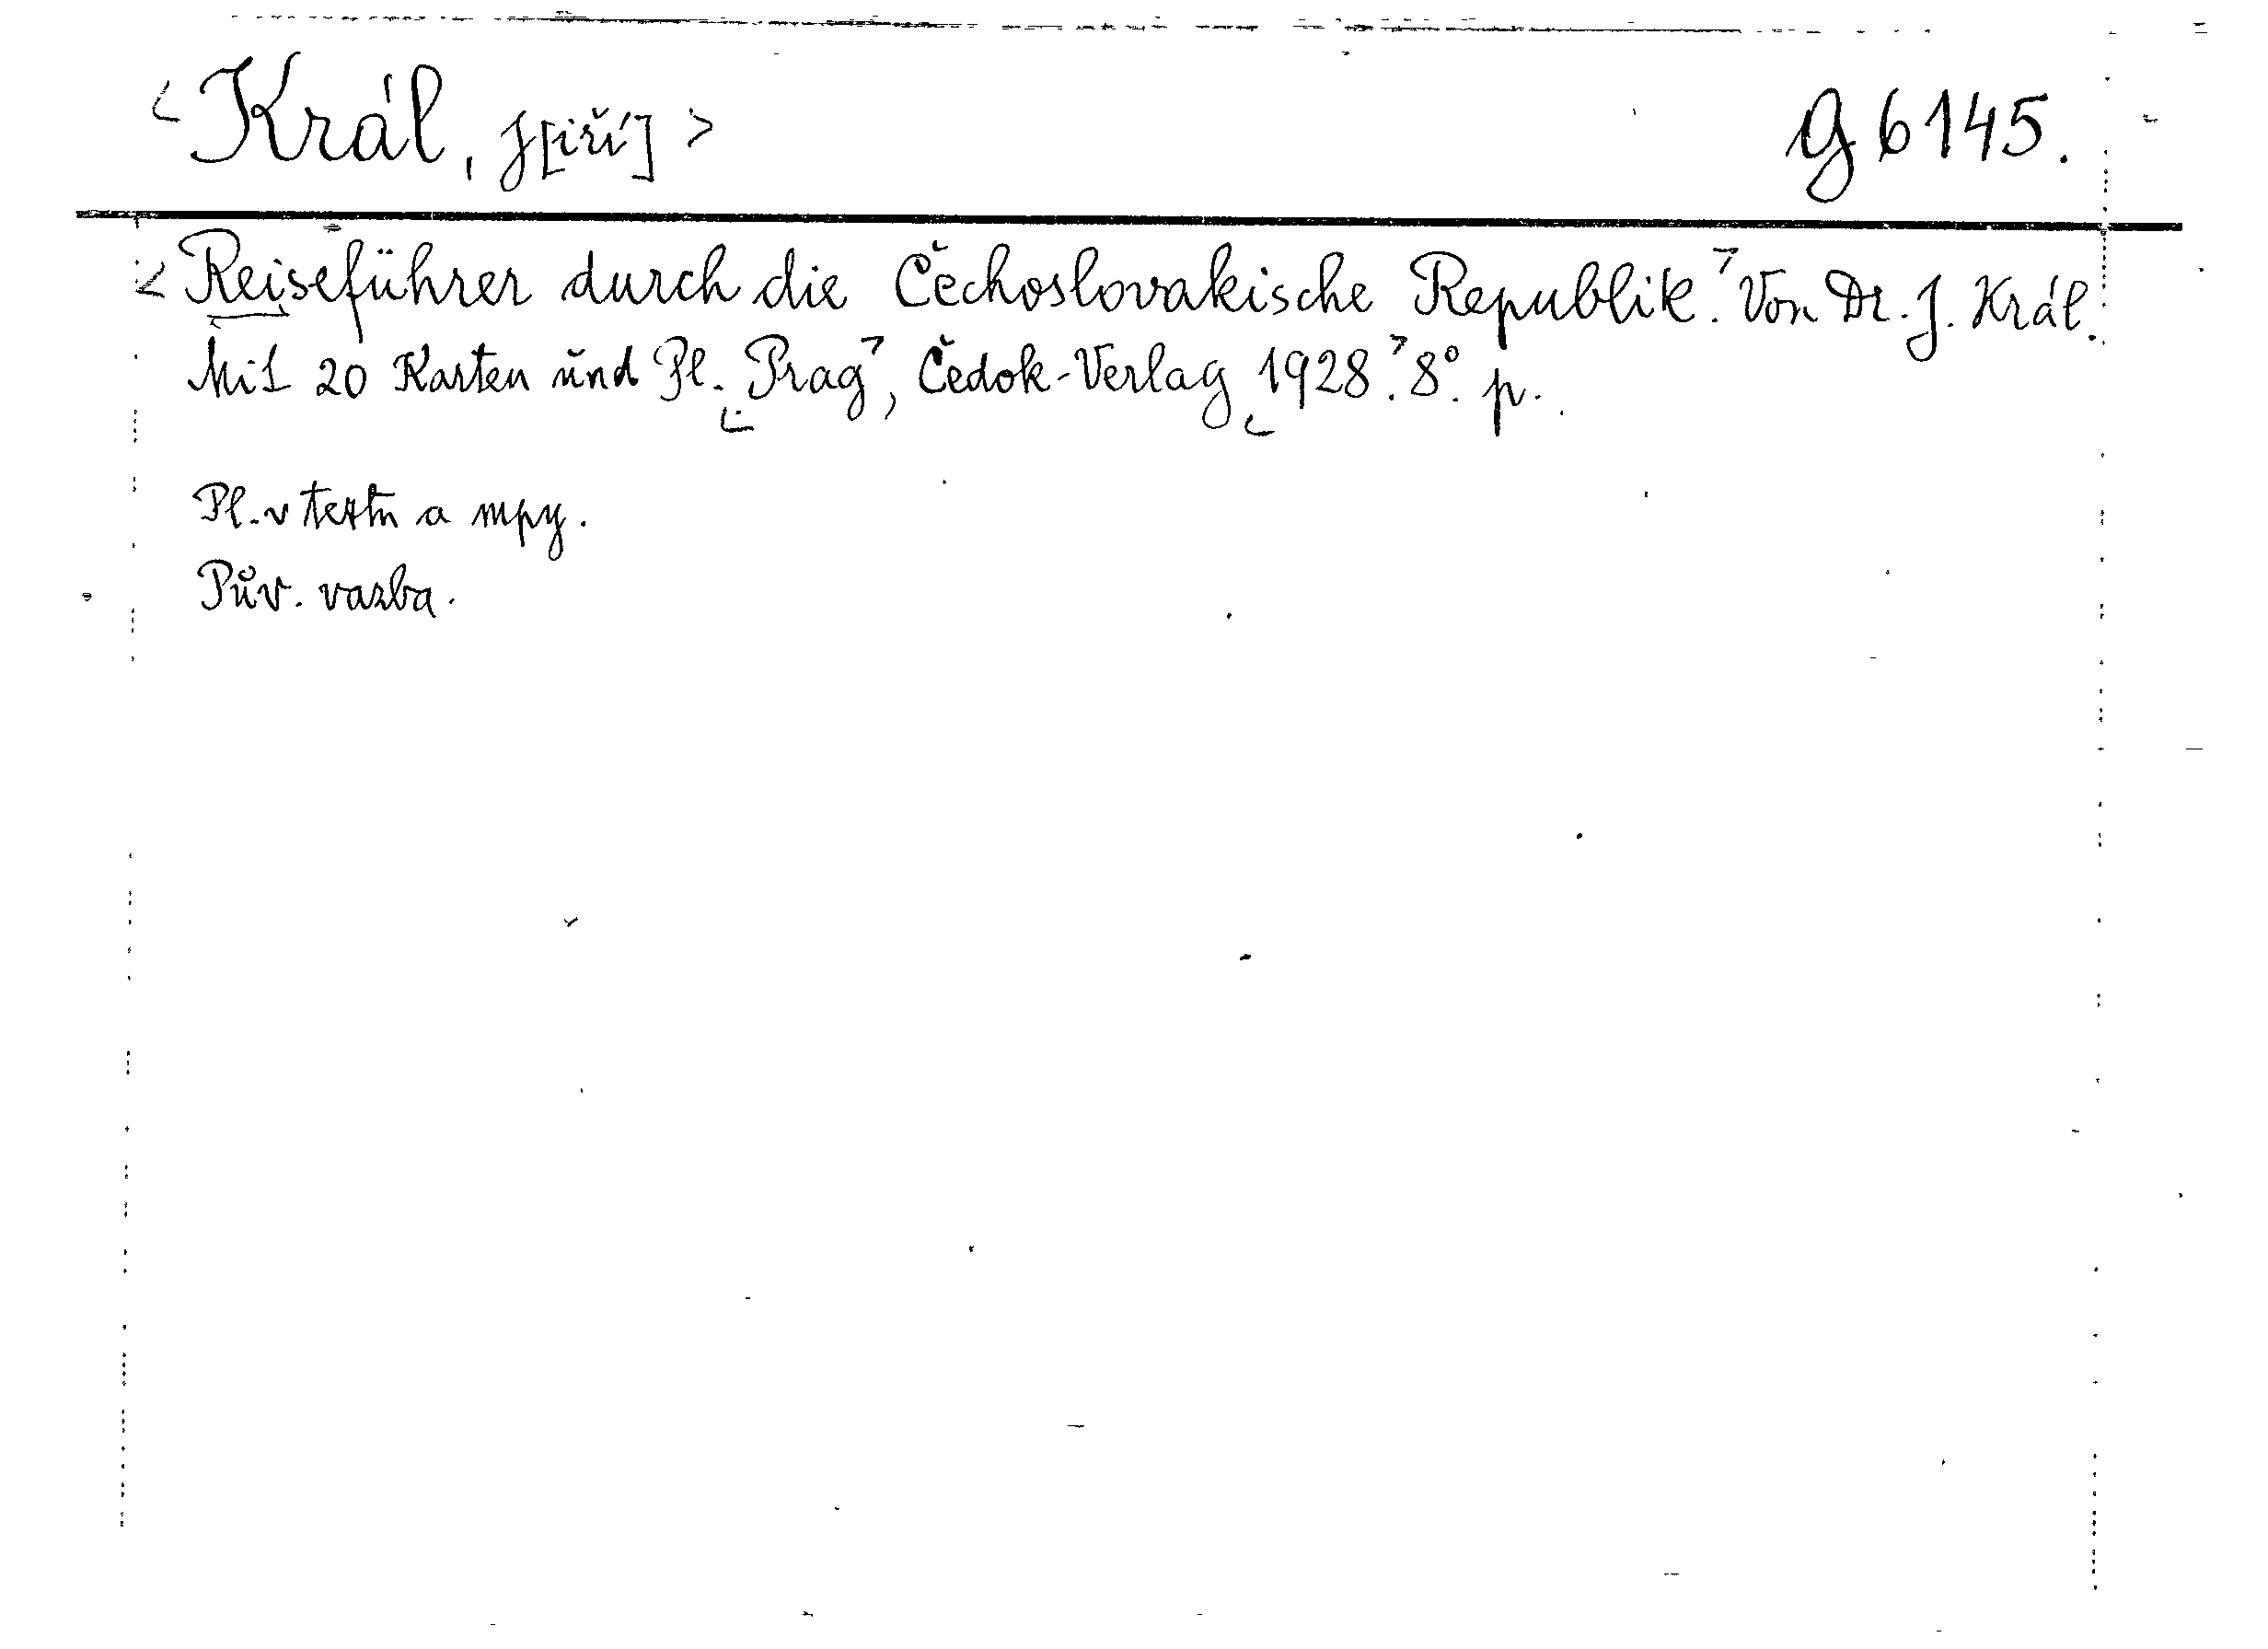 <Král, J[iří]> g 6145.
<Reiseführer durch die Čechoslovakische Republik.> Von Dr. J. Král.
Mit 20 Karten und Pl. <Prag>, Čedok-Verlag <1928.> 8°. p.
Pl. v textu a mpy.
Pův. vazba.